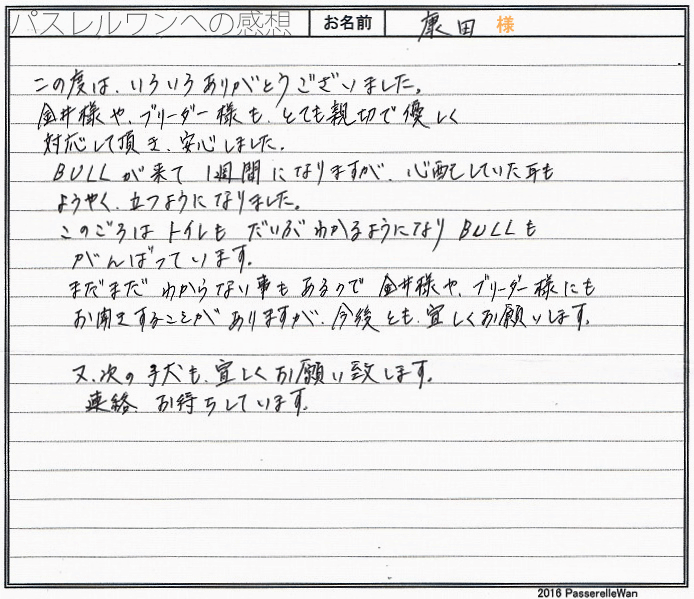 パスレルワンへの感想 お名前 康田 様
この度は、いろいろありがとうございました。
金井様や、ブリーダー様も、とても親切で優しく
対応して頂き、安心しました。
BULLが来て 1週間になりますが、心配していた耳も
ようやく、立つようになりました。
このごろは トイレも だいぶわかるようになり BULLも
がんばっています。
まだまだ わからない事も あるので 金井様や、ブリーダー様にも
お聞きすることが ありますが、今後とも、宜しくお願いします。
又、次の子犬も、宜しくお願い致します。
連絡 お待ちしています。
2016 PasserelleWan